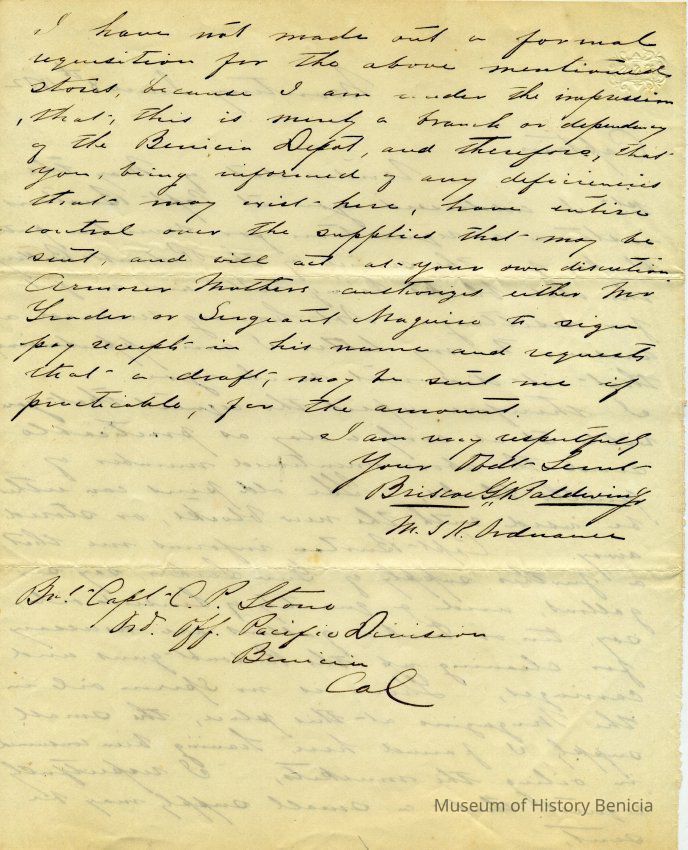 I have not made out a formal
requisition for the above mentioned
stores, because I am under the impression
, that, this is merely a branch or dependency
of the Benicia Depot, and therefore, that
you, being informed of any deficiencies
that may exist here, have entire
control over the supplies that may be
sent, and will act at your own discretion.
Armorer Mathers authorizes either Mr
or Sergeant Maguire to sign
pay receipts in his name and requests
that a draft, may be sent me if
practicable, for the amount.
I am very respectfully
Your Obdt Servt
Briscoe G. Baldwin Jr
M.S.K. Ordnance
Bvt Capt C. P. Stone
Ord. Off. Pacific Division
Benicia
Cal
Museum of History Benicia